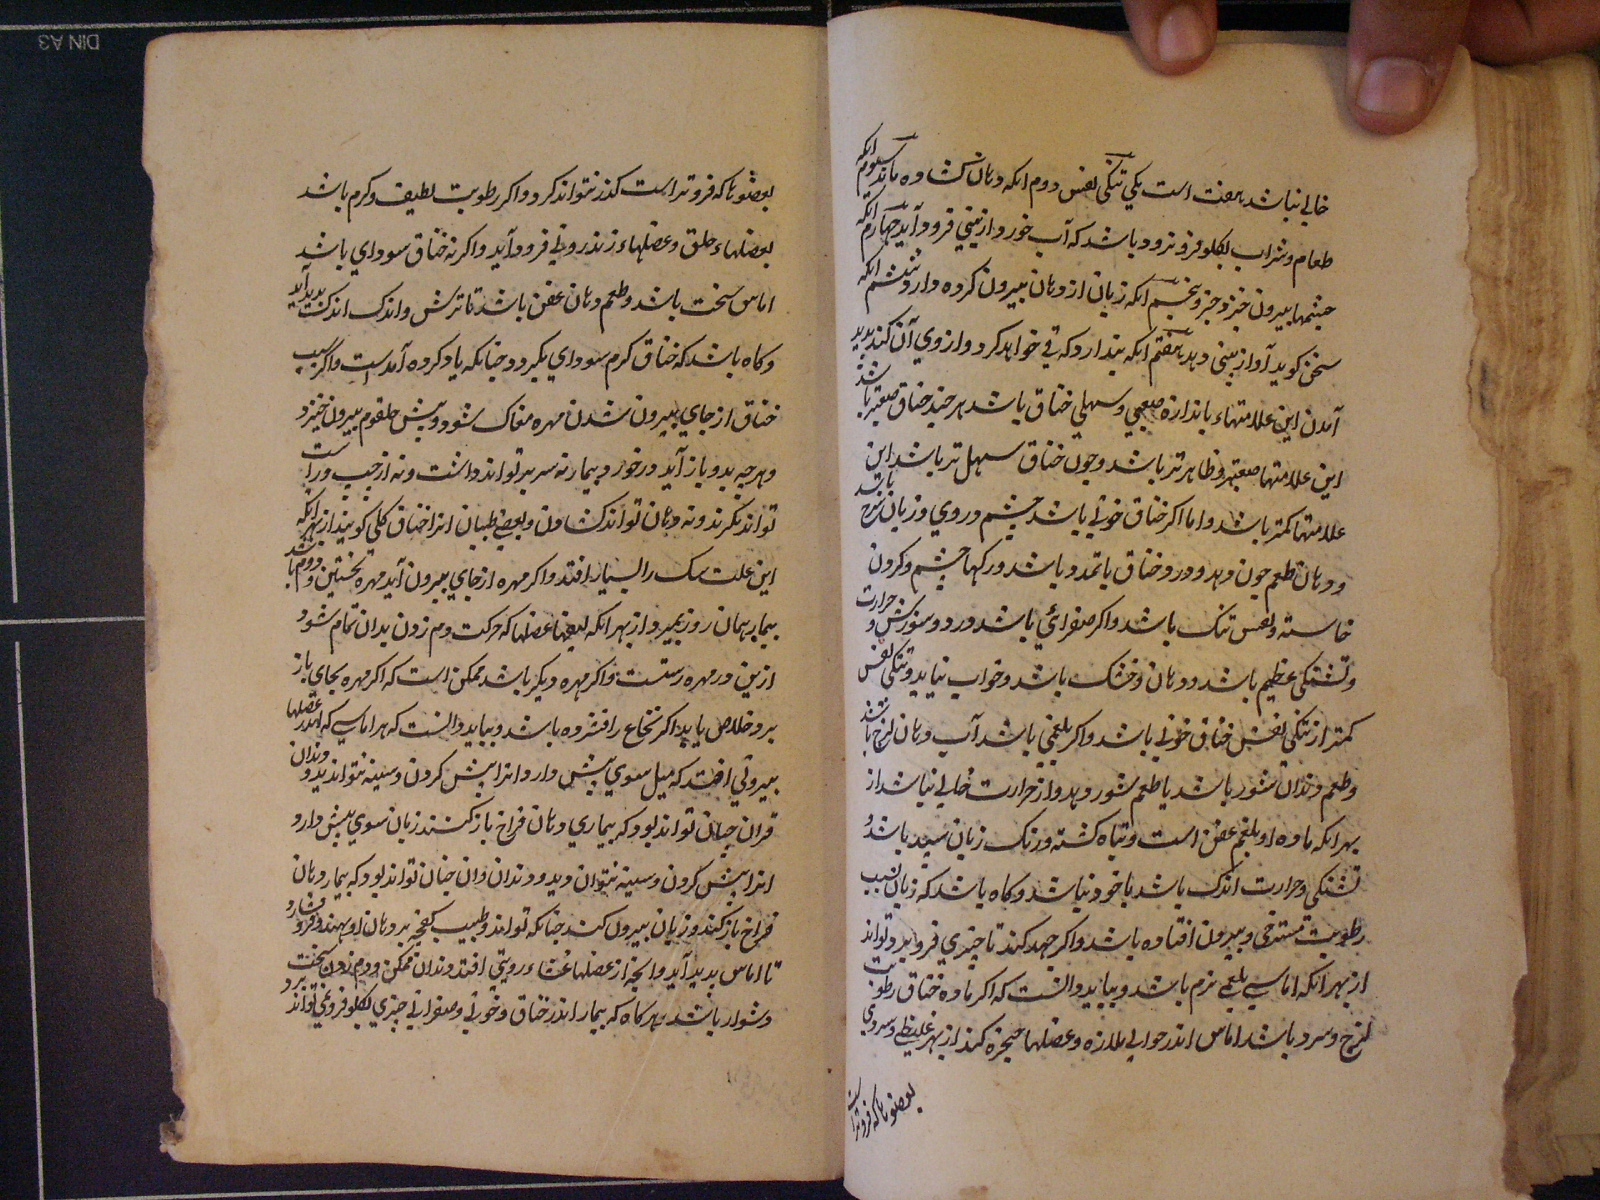 خالی نباشد هفت است یکی تنکی نفس دوم انکه دهان کشاده ماند سوم انکه
طعام و شراب بکلو فرو نرود باشد که آب خورد از بینی فرود آید چهارم انکه
چشمها بیرون خیزد پنجم انکه زبان از دهان بیرون کرده دارد ششم انکه
سخن کوید آواز بینی دهد هفتم انکه پندارد که قی خواهد کرد و از وی آن کند پدید
آمدن این علامتهاء باندازه صعبی و سهلی خناق باشد هر چند خناق صعبتر باشد
این علامتها صعبتر و ظاهرتر باشد و چون خناق سهل تر باشد این
علامتها کمتر باشد و اما اکر خناق خونی باشد چشم و روی و زبان سرخ باشد
و دهان طعم خون دهد و درد خناق با تمدد باشد و رکها چشم و کردن
خاسته و نفس تنک باشد و اکر صفرائی باشد درد و سوزش و حرارت
و تشنکی عظیم باشد و دهان خشک باشد و خواب نیاید و تنکی نفس
کمتر از تنکی نفس خناق خونی باشد و اکر بلغمی باشد آب دهان لزج باشد
و طعم دندان شور باشد یا طعم شور دهد و از حرارت خالی نباشد از
بهر انکه ماده او بلغم عفن است و تباه کشته و رنک زبان سپید باشد و
تشنکی و حرارت اندک باشد یا خود نباشد و کاه باشد که زبان بسبب
رطوبت مسترخی و بیرون افتاده باشد و اکر جهد کند تا چیزی فرو برد تواند
از بهر انکه اماسی بلغمی نرم باشد و بباید دانست که اکر ماده خناق رطوبت
لزج و سرد باشد اماس اندر حوالی ملازه و عضلها حنجره کند از بهر غلیظی و سردی
بعضوها که فروتر است
بعضوها که فروتر است کذر نتواند کرد و اکر رطوبت لطیف و کرم باشد
بعضلهاء حلق و عضلهاء اندرونی فرود آید و اکر نه خناق سودای باشد
اماس سخت باشد و طعم دهان عفن باشد تا ترش و اندک اندک پدید آید
و کاه باشد که خناق کرم سودای بکردد چنانکه یاد کرده آمدست و اکر سبب
خناق از جای بیرون شدن مهره مغاک شود و پیش حلقوم بیرون خیزد
و هرچه بدو باز آید درخورد و بیمار نه سر بر تواند داشت و نه از چپ و راست
تواند نکرند و نه دهان تواند کشادن و بعضی طبیبان انرا خناق کلبی کویند از بهر انکه
این علت سک را بسیار افتد و اکر مهره از جای بیرون آید مهره نخستین و دوم باشد
بیمار همان روز بمیرد از بهر انکه بعضها عضلها که حرکت دم زدن بدان تمام شود
ازین دو مهره رستست و اکر مهره دیکر باشد ممکن است که اکر مهره بجای باز
برد خلاص یابد اکر نخاع را افشرده باشد و بباید دانست که هر اماسی که اندر عضلها
بیرونی افتد که میل سوی پیش دارد انرا پیش کردن و سینه نتواند دید و دندان
قرآن چنان تواند بود که بیماری دهان فراخ باز کنند زبان سوی پیش دارد
انرا پیش کردن و سینه نتوان دید و دندان وان چنان تواند بود که بیمار دهان
فراخ باز کند و زبان بیرون کند چنانکه تواند و طبیب کفچه بر دهان او نهد و فرو فشارد
تا اماس پدید آید و انچه از عضلها غشاء رویتی افتد دندان ممکن و دم زدن سخت
دشوار باشد هر کاه که بیمار اندر خناق و خونی و صفرائی چیزی بکلو فرو نمی تواند برد